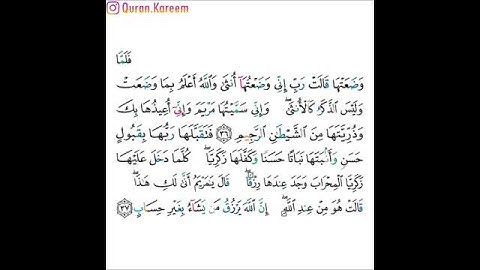 Quran.Kareem
فَلَمَّا
وَضَعَتْهَا قَالَتْ رَبِّ إِنِّي وَضَعْتُهَآ أُنثَىٰ وَٱللَّهُ أَعْلَمُ بِمَا وَضَعَتْ
وَلَيْسَ ٱلذَّكَرُ كَٱلْأُنثَىٰۖ وَإِنِّي سَمَّيْتُهَا مَرْيَمَ وَإِنِّيٓ أُعِيذُهَا بِكَ
وَذُرِّيَّتَهَا مِنَ ٱلشَّيْطَٰنِ ٱلرَّجِيمِ ٣٦ فَتَقَبَّلَهَا رَبُّهَا بِقَبُولٍ
حَسَنٍ وَأَنۢبَتَهَا نَبَاتًا حَسَنًا وَكَفَّلَهَا زَكَرِيَّاۖ كُلَّمَا دَخَلَ عَلَيْهَا
زَكَرِيَّا ٱلْمِحْرَابَ وَجَدَ عِندَهَا رِزْقًاۖ قَالَ يَٰمَرْيَمُ أَنَّىٰ لَكِ هَٰذَاۖ
قَالَتْ هُوَ مِنْ عِندِ ٱللَّهِۖ إِنَّ ٱللَّهَ يَرْزُقُ مَن يَشَآءُ بِغَيْرِ حِسَابٍ ٣٧